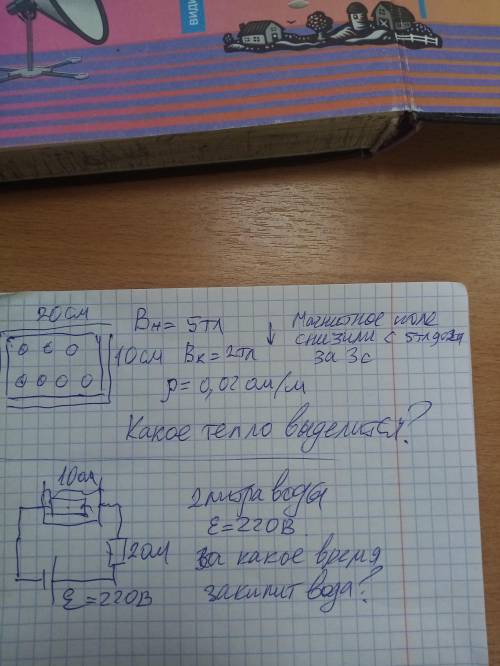 види
20см
Bн = 5тл
10см
Bк = 2тл
ρ = 0,02 ом/м
↓ Магнитное поле
снизили с 5тл до 2тл
за 3с
Какое тепло выделится?
10ом
20м
ε = 220В
2 литра воды
ε = 220В
за какое время
закипит вода?